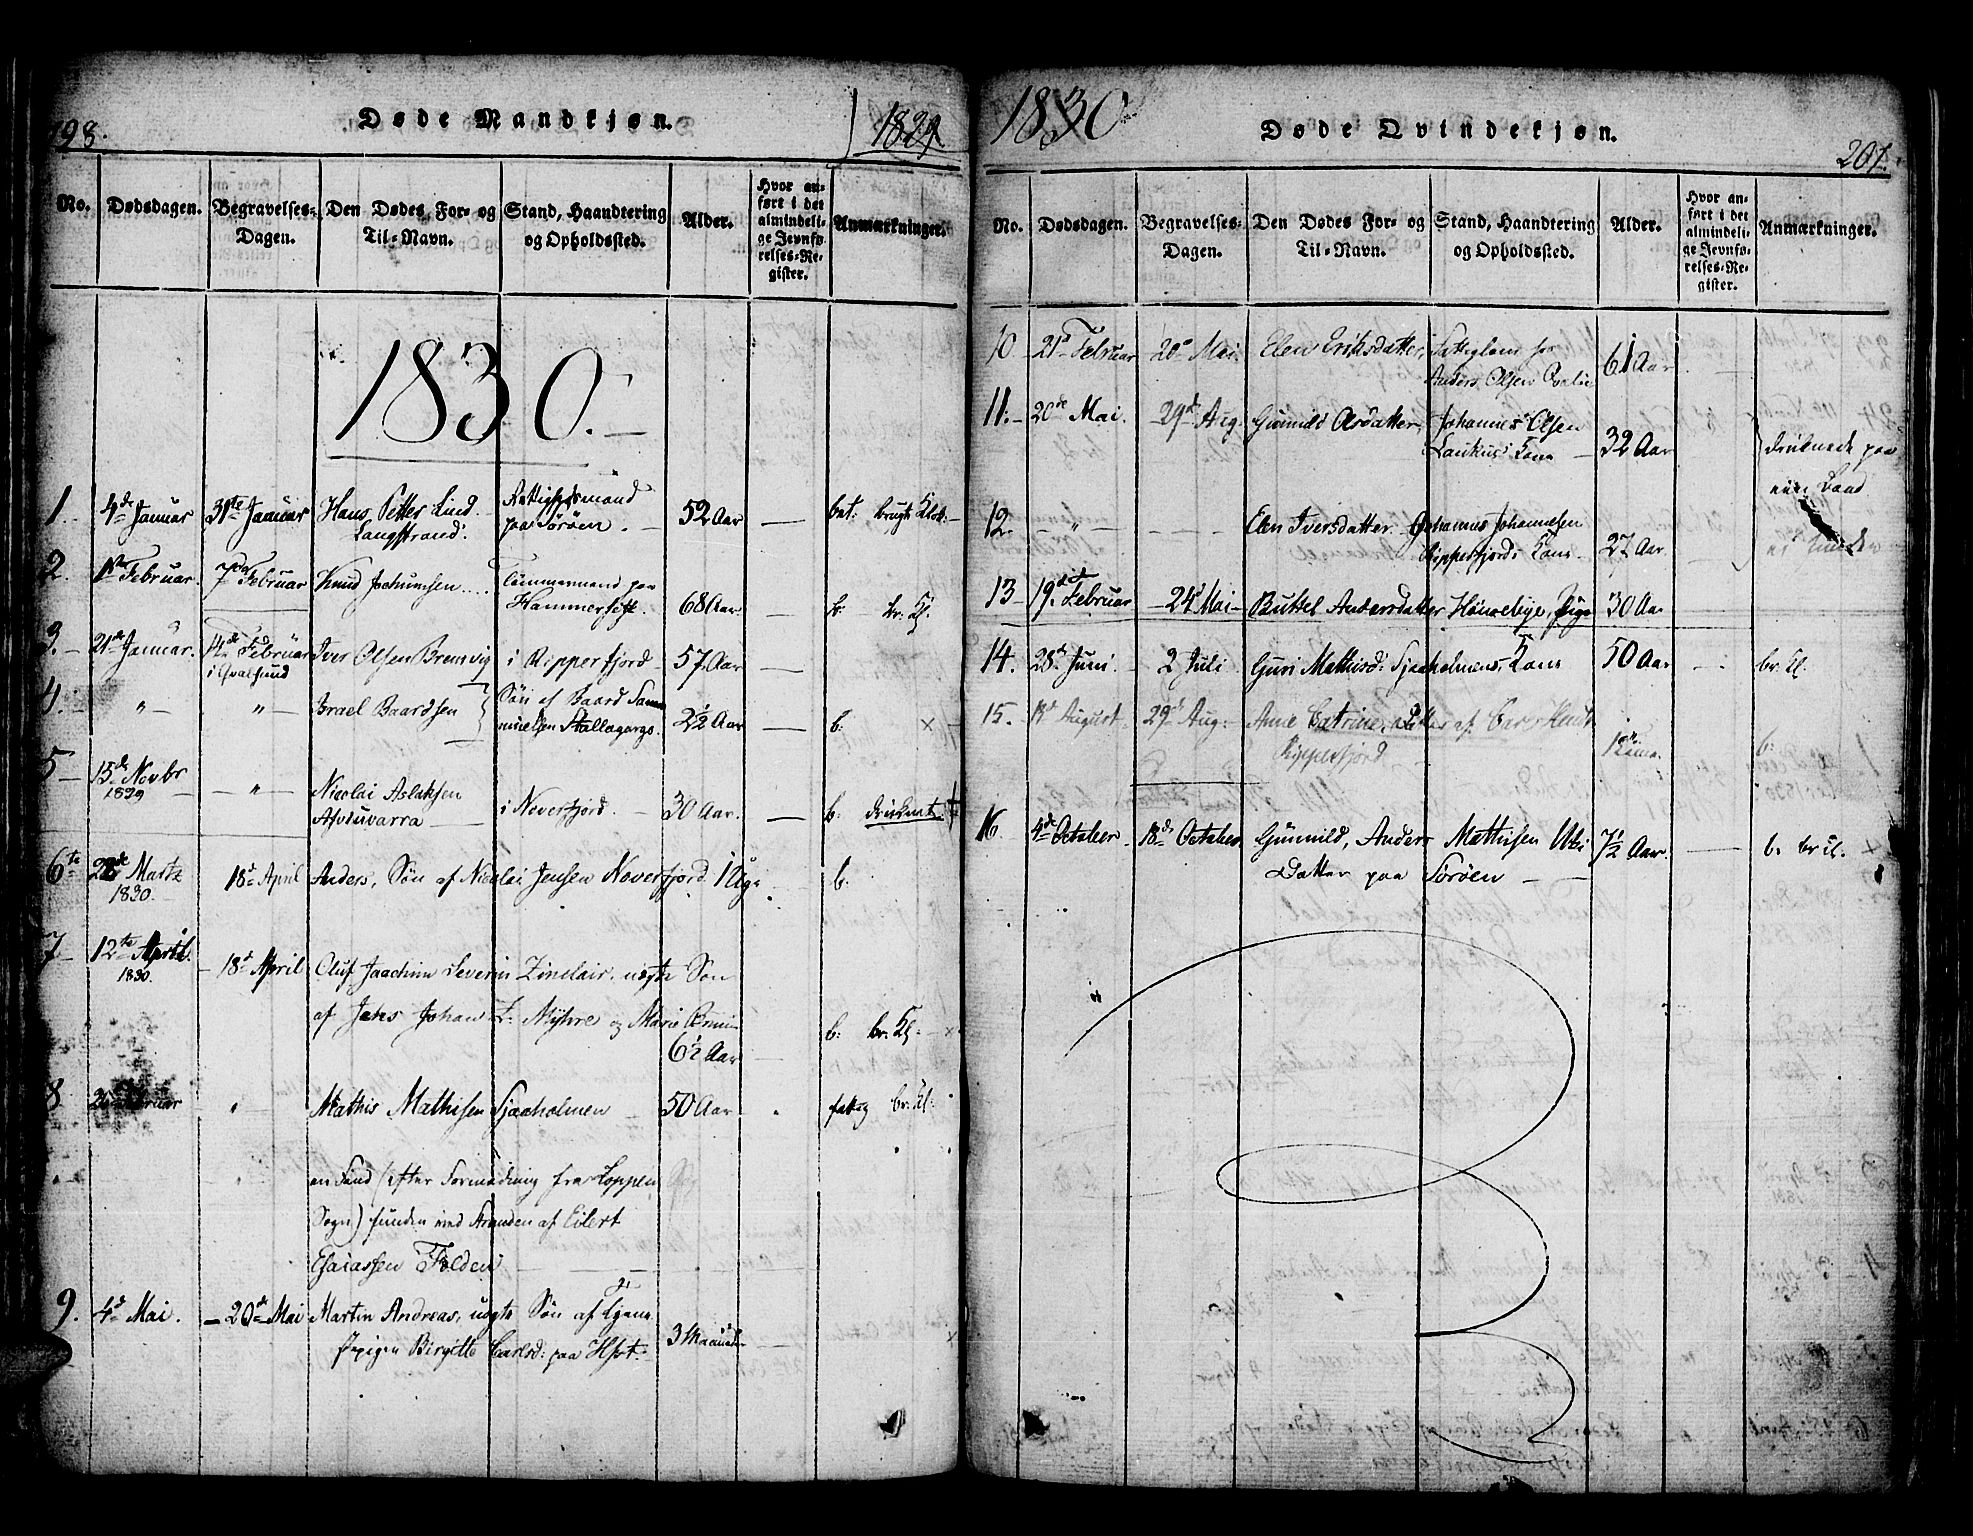 198.
Døde Mandkjøn.
1829
No.
Dødsdagen.
Begravelses-
Dagen.
Den Dødes For- og
Til-Navn.
Stand, Haandtering
og Opholdssted.
Alder.
Hvor an-
ført i det
almindeli-
ge Jevnfø-
relses-Re-
gister.
Anmærkninger.
1830.
1. 4de Januar 31te Januar Hans Petter Lind paa Sørøen. 52 Aar
Langstrand.
2. Februar. 7de Februar Knud Jochumsen Tømmermand paa
Hammerfest. 68 Aar b:
3. 21de Januar. 14de Februar Iver Olsen Bremvig i Ripperfjord 57 Aar
i Qvalsund
4. " " Israel Baardsen Søn af Baard Sam-
muelsen 2½ Aar b: ×
5 15de Novbr " Nicolai Aslaksen
1829 i Noverfjord. 30 Aar. b. druknet
6te Martz 18d April Anders, Søn af Nicolai Jensen Noverfjord. 1 Uge b.
1830.
7 12te April. 18d April Oluf Joachim Severin Zinclair, uægte Søn
1830.
af Jens Johan Z. Myhre og Marie
6½ Aar b: br. Kl. ×
8 Februar " Mathis Mathisen Sjaaholmen 50 Aar br: Kl:
en Find (efter Formodning fra Loppen
Sogn) funden ved Stranden af Eilert
Esaiassen Folden
9. 4d Mai. 20de Mai Martin Andreas, uægte Søn af Tjene-
stepigen Birgitte Carlsd: paa Hfst. 3 Maaneder ×
1830
Døde Qvindekjøn.
201.
No.
Dødsdagen.
Begravelses-
Dagen.
Den Dødes For- og
Til-Navn.
Stand, Haandtering
og Opholdssted.
Alder.
Hvor an-
ført i det
almindeli-
ge Jevnfø-
relses-Re-
gister.
Anmærkninger.
10 21d Februar 20d Mai. Elen Eriksdatter, Fattiglem for
Anders Olsen 61 Aar
11. 20de Mai. 29d Aug. Gunnild Olsdatter, Johannes Olsen
Kone 32 Aar druknede paa
Land
12 " Elen Iversdatter Johannes Johannesen
Ripperfjords Kone 27 Aar.
13 19d Februar 24d Mai Buttel Andersdatter Pige 30 Aar
14. 28d Juni. 2 Juli Guri Mathisd: Sjaaholmens Kone 50 Aar br. Kl.
15. August 29d Aug: Anne Catrine, Datter af
Ripperfjord b:
16 4de October 18de October Gunnild, Anders Mathisen 7½ Aar. b. br Kl. ×
Datter paa Sørøen